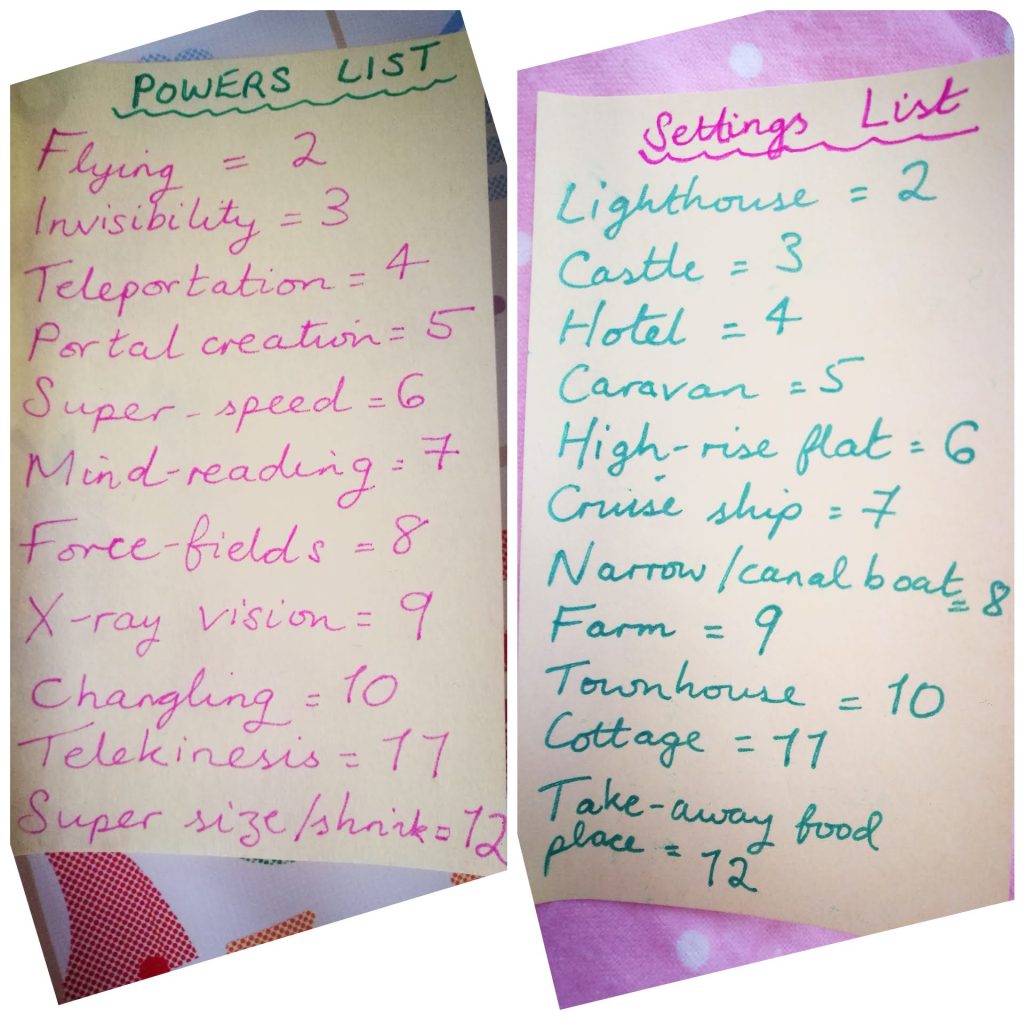 POWERS LIST
Flying = 2
Invisibility = 3
Teleportation = 4
Portal creation = 5
Super-speed = 6
Mind-reading = 7
Force-fields = 8
X-ray vision = 9
Changling = 10
Telekinesis = 11
Super size/shrink = 12
Settings List
Lighthouse = 2
Castle = 3
Hotel = 4
Caravan = 5
High-rise flat = 6
Cruise ship = 7
Narrow/canal boat = 8
Farm = 9
Townhouse = 10
Cottage = 11
Take-away food
place = 12